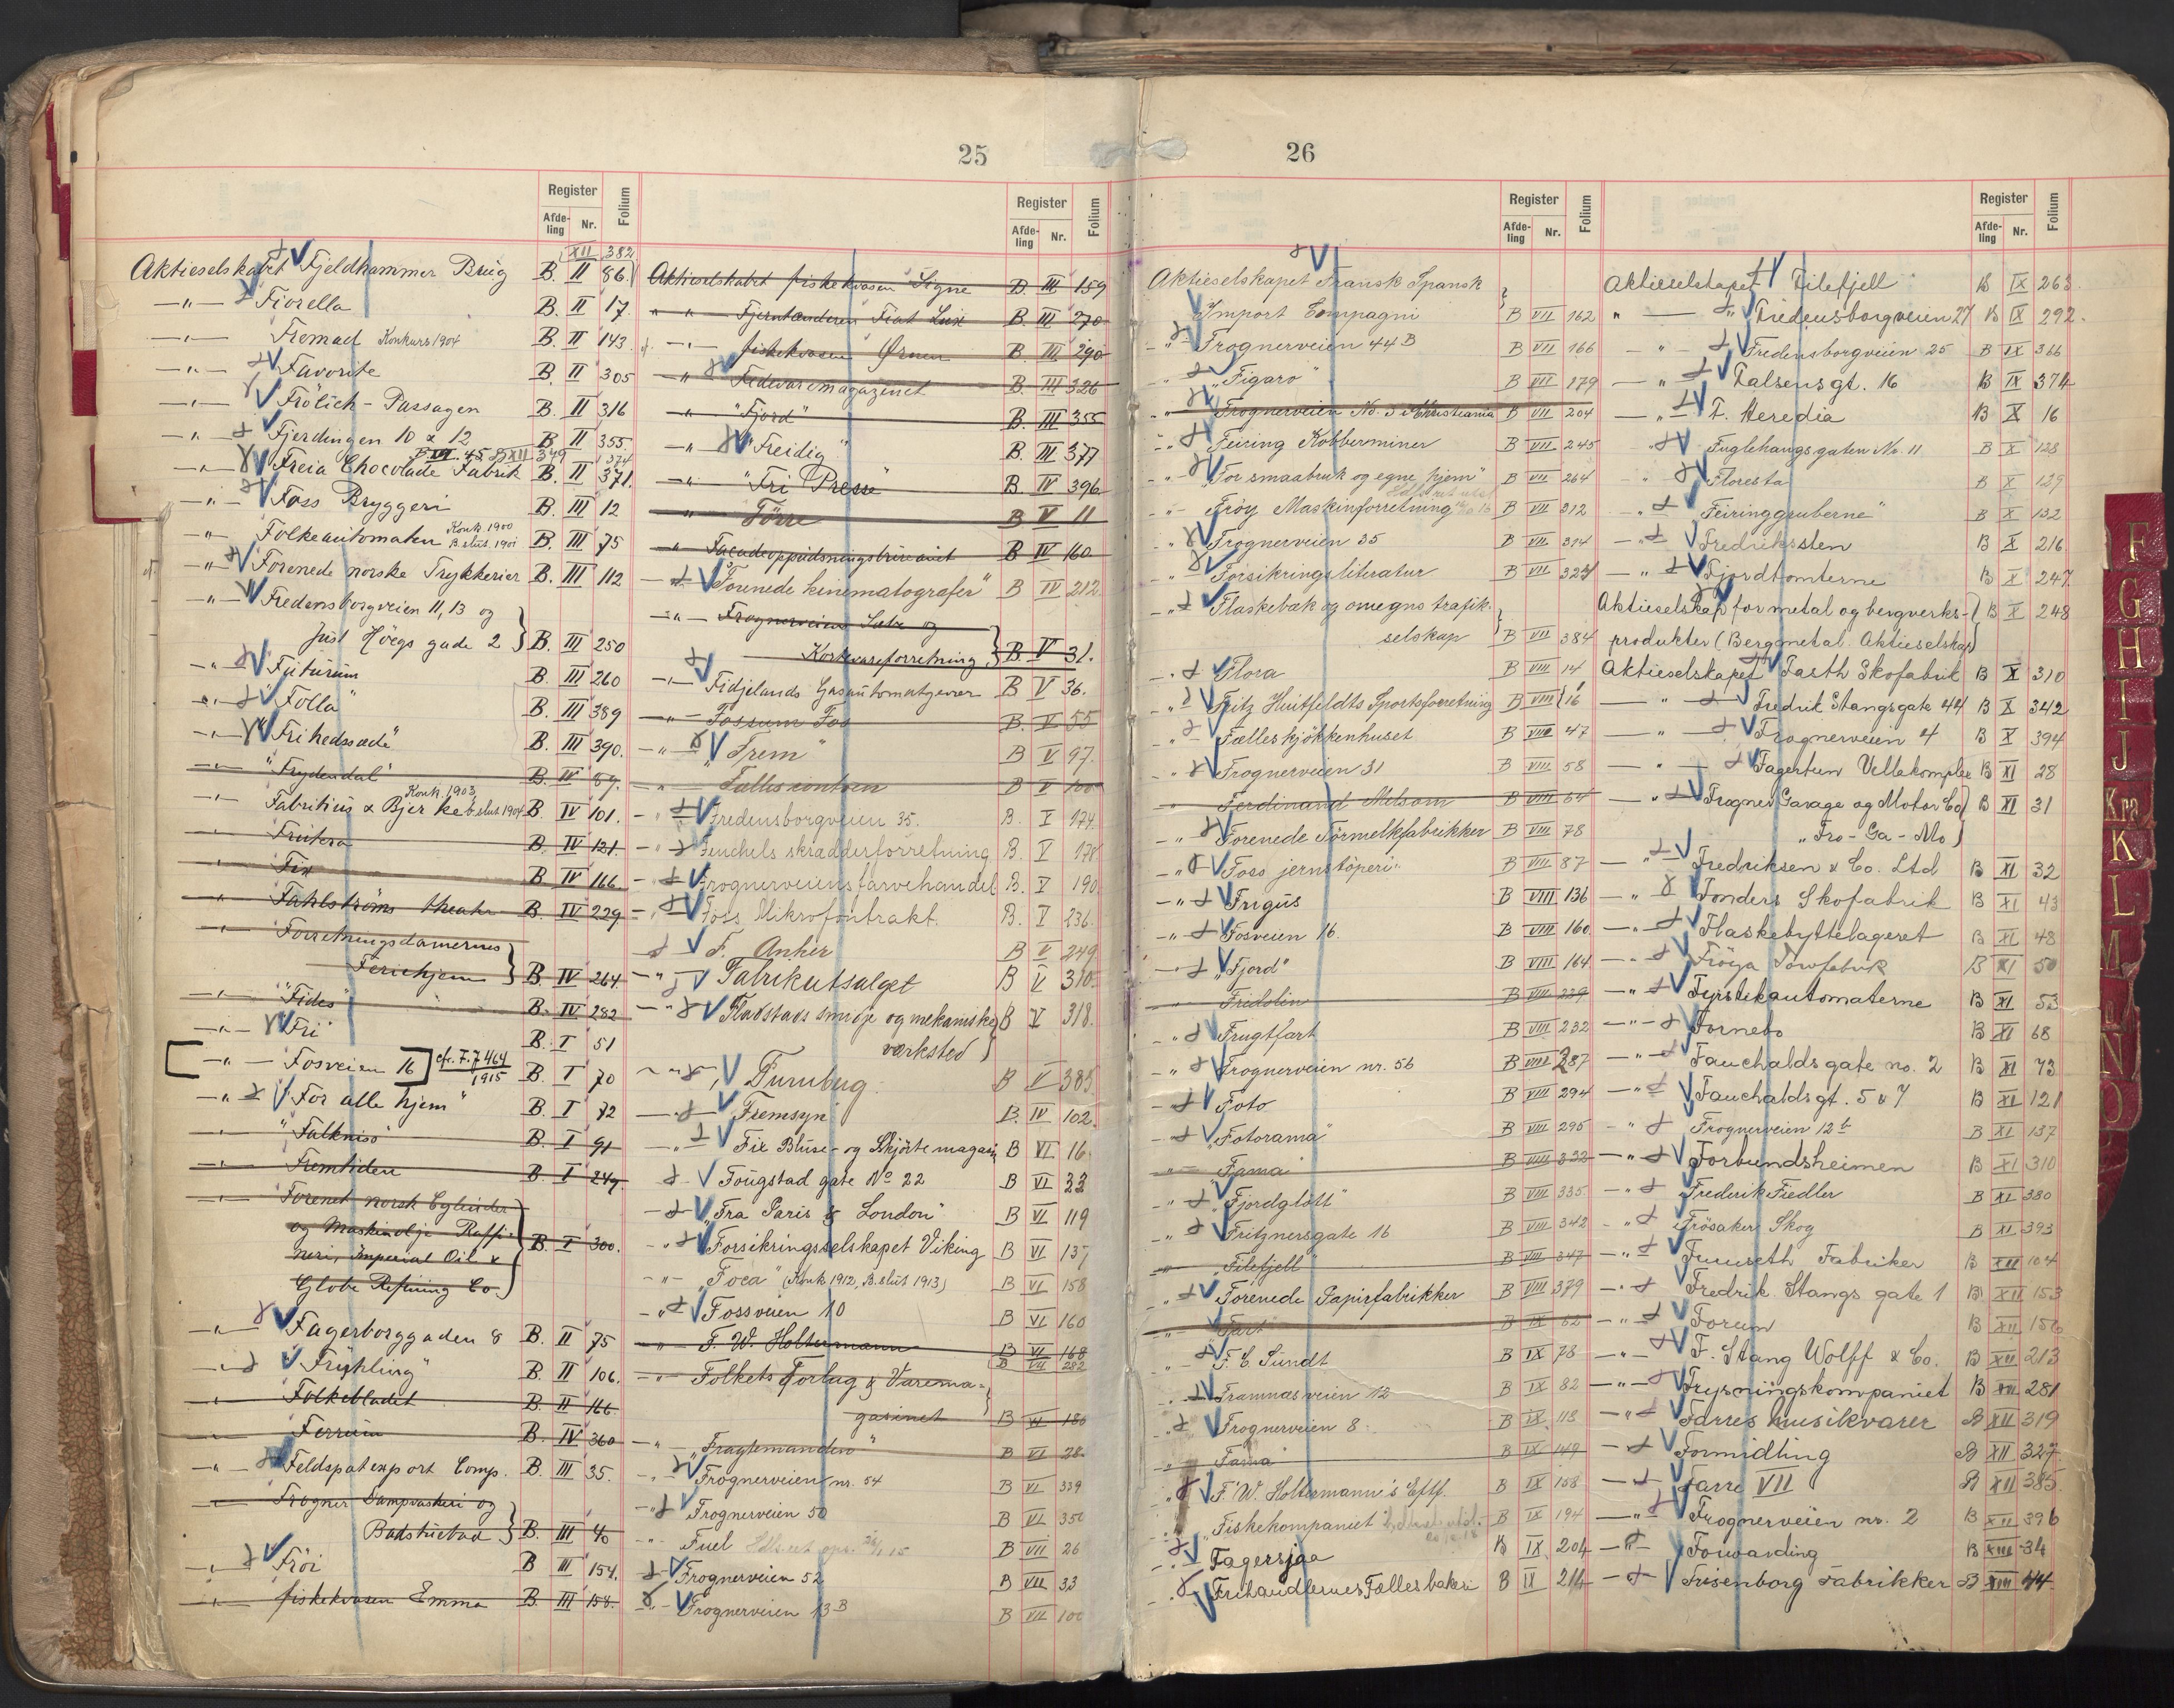 25
Register
Afde-
ling
Nr.
Folium
XII 382
Aktieselskabet Fjeldhammer Brug B. II 86
—"— Fiorella B. II 17.
—"— Fremad Konkurs 1904 B. II 143.
—"— Favorite B. II 305
—"— Frölich-Passagen B. II 316
—"— Fjerdingen 10 & 12 B. II 355
B VII 45 B XII 349 374
—"— Freia Chocolade Fabrik B. II 371.
—"— Foss Bryggeri B. III 12
—"— Folkeautomaten Konk. 1900 B. slut. 1901 B. III 75
—"— Forenede norske Trykkerier B. III 112
—"— Fredensborgveien 11, 13 og
Just Höegs gade 2 B. III 250
—"— Futurum B. III 260
—"— "Folla" B. III 389
—"— "Frihedssæde" B. III 390.
—"— "Frydendal" B. IV 89.
—"— Fabritius & Bjerke Konk. 1903, b. slut 1904 B. IV 101.
—"— Frutera B. IV 131.
—"— Fix B. IV 166
—"— Fahlströms theater B. IV 229
—"— Forretningsdamernes
Feriehjem B. IV 264
—"— "Fides" B. IV 282
—"— "Fri" B. I 51
—"— Fosveien 16 cfr. F. 7464/1915 B. I 70
—"— "For alle hjem" B. I 72
—"— "Falkniso" B. I 91
—"— Fremtiden B. I 249.
—"— Forenet norsk Cylinder
og Maskinolje Raffi-
neri, Imperial Oil &
Globe Refining Co B. I 300.
—"— Fagerborggaden 8 B. II 75
—"— "Frühling" B. II 106.
—"— Folkebladet B. II 166
—"— Ferrum B. IV 360
—"— Feldspatexport Comp. B. III 35.
—"— Frogner Dampvaskeri og
Badstuebad B. III 40
—"— Fröi B III 154.
—"— fiskekvasen Emma B. III 158.
Register
Afde-
ling
Nr.
Folium
Aktieselskabet fiskekvasen Signe B. III 159
" " Fjerntænderen Fiat Lux B. III 270
—"— fiskekvasen Ørnen B. III 290
—"— Fedevaremagazinet B. III 326
—"— "Fjord" B. III 355
—"— "Freidig" B. III 377
—"— "Fri Presse" B. IV 396
—"— Förre B V 11
—"— Facadeoppudsningsbureauet B IV 160
—"— "Forenede kinematografer" B IV 212
—"— Frognerveiens Sæbe og
Korkvareforretning B. V 31.
—"— Fidjelands Gasautomatgevær B V 36.
—"— Fossum Fos B. V 55
—"— "Frem" B V 97.
—"— Fælles contoen B V 100
—"— Fredensborgveien 35. B. V 174.
—"— Feuchels skrædderforretning B. V 178
—"— Frognerveiens farvehandel B. V 190.
—"— Foss Mikrofontrakt. B. V 236.
F. Anker B V 249
—"— Fabrikutsalget B V 310.
—"— Fladstads smidje og mekaniske
værksted B V 318.
—"— Furubug B V 385
—"— "Fremsyn" B. IV 102.
—"— Fix Bluse- og Skjörtemagasin B VI 16
Fougstad gate No 22 B VI 33
—"— "Fra Paris & London" B VI 119
—"— Forsikringsselskapet Viking B VI 137
—"— "Foca" (Konk 1912, B. slut 1913) B VI 158
—"— Fossveien 10 B VI 160
—"— F. W. Holtermann B VI 168
B VII 282
—"— Folkets Forlag & Varema-
gasinet B VI 180
—"— "Fragtemanden" B VI 28
—"— Frognerveien nr. 54 B VI 339
—"— Frognerveien 50 B VI 350
—"— Fuel B VII 26
Frognerveien 52 B VII 33
—"— Frognerveien 13 B B VII 100
26
Register
Afde-
ling
Nr.
Folium
Aktieselskapet Fransk Spansk
Import Compagni B VII 162
—"— Frognerveien 44 B B VII 166
—"— "Figaro" B VII 179
—"— Frognerveien No. 5 i Christiania B VII 204
—"— Feiring Kobberminer B VII 245
—"— "For smaabruk og egne hjem" B VII 264
—"— Fröy Maskinforretning B VII 312
—"— Frognerveien 35 B VII 314
—"— Forsikringsliteratur B VII 324
—"— Flaskebæk og omegns trafik-
selskap B VII 384
—"— Flora B VIII 14
—"— Fritz Huitfeldts Sportsforretning B VIII 16
—"— Fælleskjökkenhuset B VIII 47
—"— Frognerveien 31 B VIII 58
—"— Ferdinand Melsom B VIII 64
—"— Forenede Tørmelkfabrikker B VIII 78
—"— Foss jernstöperi" B VIII 87
—"— Frigus B VIII 136
—"— Fosveien 16. B VIII 160
—"— "Fjord" B VIII 164
—"— Fridolin B VIII 239
—"— Frugtfart B VIII 232
—"— Frognerveien nr. 56 B VIII 287
—"— Foto B VIII 294
—"— "Fotorama" B VIII 295
—"— "Fama" B VIII 322
—"— "Fjordglött" B VIII 335
—"— Fritznersgate 16 B VIII 342
—"— "Filefjell" B VIII 347
—"— Forenede Papirfabrikker B VIII 379
—"— Fart B IX 62
—"— F. C. Sundt B IX 78
—"— Framnæsveien 12 B IX 82
—"— Frognerveien 8 B IX 118
—"— Fama B IX 149
—"— F. W. Holtermann's Eftf. B IX 158
—"— "Fiskekompaniet B IX 194
—"— Fagersjaa B IX 204
—"— Frihandlernes Fælles bakeri B IX 214
Register
Afde-
ling
Nr.
Folium
Aktieselskapet Filefjell B IX 263.
" — " Fredensborgveien 27 B IX 292.
—"— Fredensborgveien 25 B IX 366
—"— Falsensgt. 16 B IX 374
—"— F. Heredia B X 16
—"— Fuglehaugsgaten No. 11 B X 128
—"— Floresta B X 129
—"— Feiringgruberne" B X 132
—"— Fredriksten B X 216
—"— Fjordtomterne B X 247.
Aktieselskap for metal og bergverks- B X 248
produkter (Bergmetal Aktieselskap)
Aktieselskapet Fasth Skofabrik B X 310
—"— Fredrik Stangsgate 44 B X 342
—"— Frognerveien 4 B X 394
—"— Fagertun Villakomplex B XI 28
—"— Frogner Garage og Motor Co B XI 31
"Fro-Ga-Mo"
—"— Fredriksen & Co. Ltd B XI 32
—"— Fonders Skofabrik B XI 43
—"— Flaskebyttelageret B XI 48
—"— Fröya Towfabrik B XI 50
—"— Fyrstikautomaterne B XI 53
—"— Fornebo B XI 68
—"— Fauchaldsgate no. 2 B XI 73
—"— Fauchaldsgt. 5 & 7 B XI 121
—"— Frognerveien 12 b B XI 137
—"— Forbundsheimen B XI 310
—"— Frederik Fiedler B XI 380
—"— Frösaker Skog B XI 393
—"— Fruseth Fabriker B XII 104
—"— Fredrik Stangs gate 1 B XII 153
—"— Forum B XII 156
—"— F. Stang Wolff & Co. B XII 213
—"— Frysningskompaniet B XII 281
—"— Farres Musikvarer B XII 319
—"— Formidling B XII 327.
—"— Farre VII B XII 385.
—"— Frognerveien nr. 2 B XII 396
—"— Forwarding B XIII 34
—"— Frisenborg Fabrikker B XIII 44
F
G
H
I
J
K
L
M
N
O